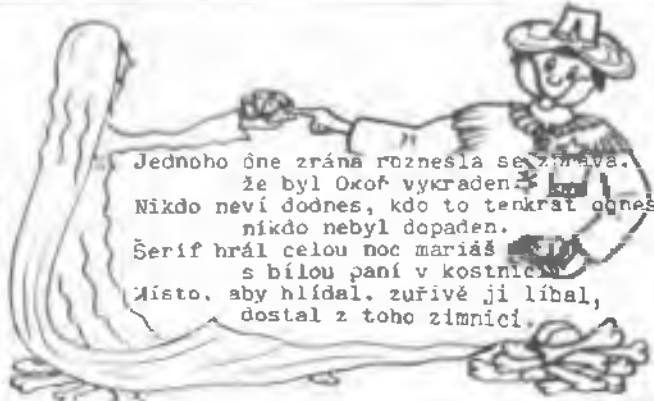 Jednoho dne zrána roznesla se zpráva.
že byl Okoř vykraden.
Nikdo neví dodnes, kdo to tenkrát odnes
nikdo nebyl dopaden.
Šerif hrál celou noc mariáš
s bílou paní v kostnici
Místo, aby hlídal. zuřivě ji líbal,
dostal z toho zimnici.